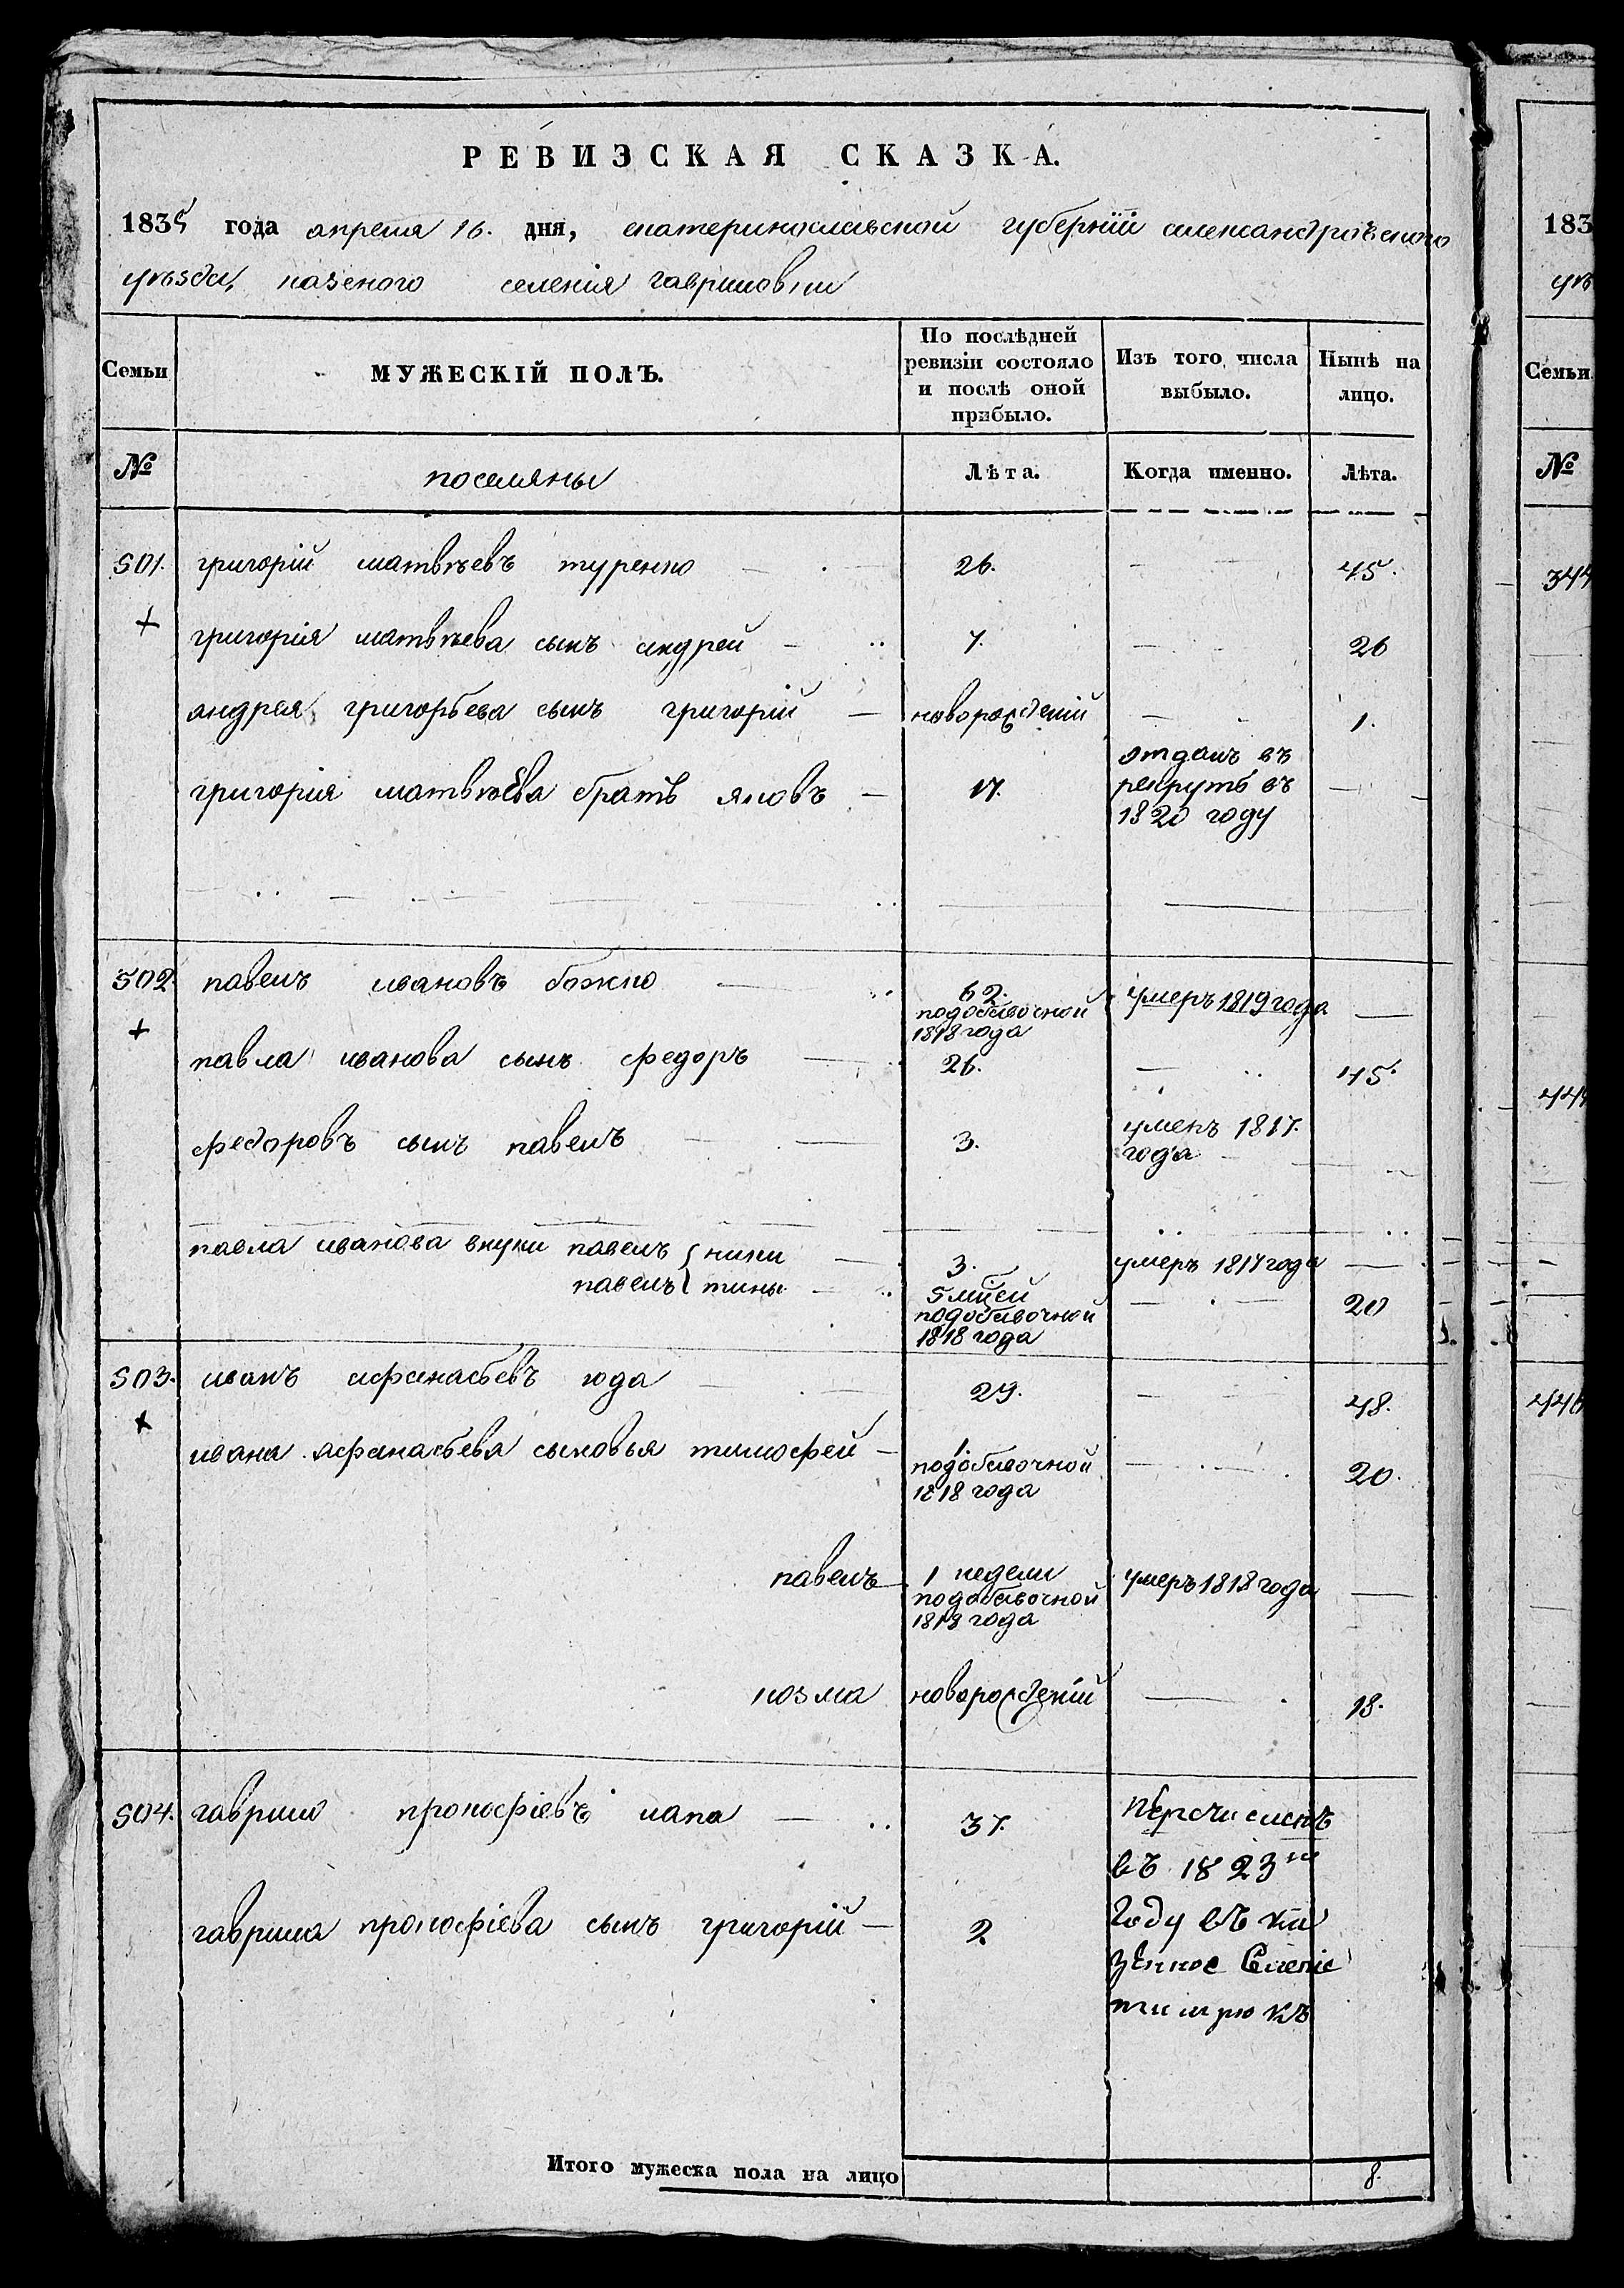 РЕВИЗСКАЯ СКАЗКА.
1835 года апреля 16. дня, екатеринославской губерніи александровского
уѣзда, казеного селенія гавриловки
Семьи МУЖЕСКІЙ ПОЛЪ. По послѣдней ревизіи состояло и послѣ оной прибыло. Изъ того числа выбыло. Нынѣ на лицо.
№ поселяны Лѣта. Когда именно. Лѣта.
501. григорій матвѣевъ туренко 26. 45.
григорія матвѣева сынъ андрей 7. 26
андрея григорьева сынъ григорій новорожденій 1.
григорія матвѣева братъ яковъ 17. отданъ въ
рекрутъ въ
1820 году
502. павелъ ивановъ божко 62. умеръ 1819 года
подобавочной
1818 года
павла иванова сынъ федоръ 26. 45.
федоровъ сынъ павелъ 3. умеръ 1817.
года
павла иванова внуки павелъ ники 3. умеръ 1817 года
павелъ тины 5 мцей 20
подобавочной
1818 года
503. иванъ афанасьевъ юда 29. 48.
ивана афанасьева сыновья тимофей 1. 20.
подобавочной
1818 года
павелъ 1 недели умеръ 1818 года
подобавочной
1818 года
козма новорожденій 18.
504. гаврило прокофіевъ лапа 37. перечисленъ
въ 1823м
гаврила прокофіева сынъ григорій 2. году въ ка
зенное селеніе
Итого мужеска пола на лицо 8.
183
уѣ
Семьи
№
344
444
446